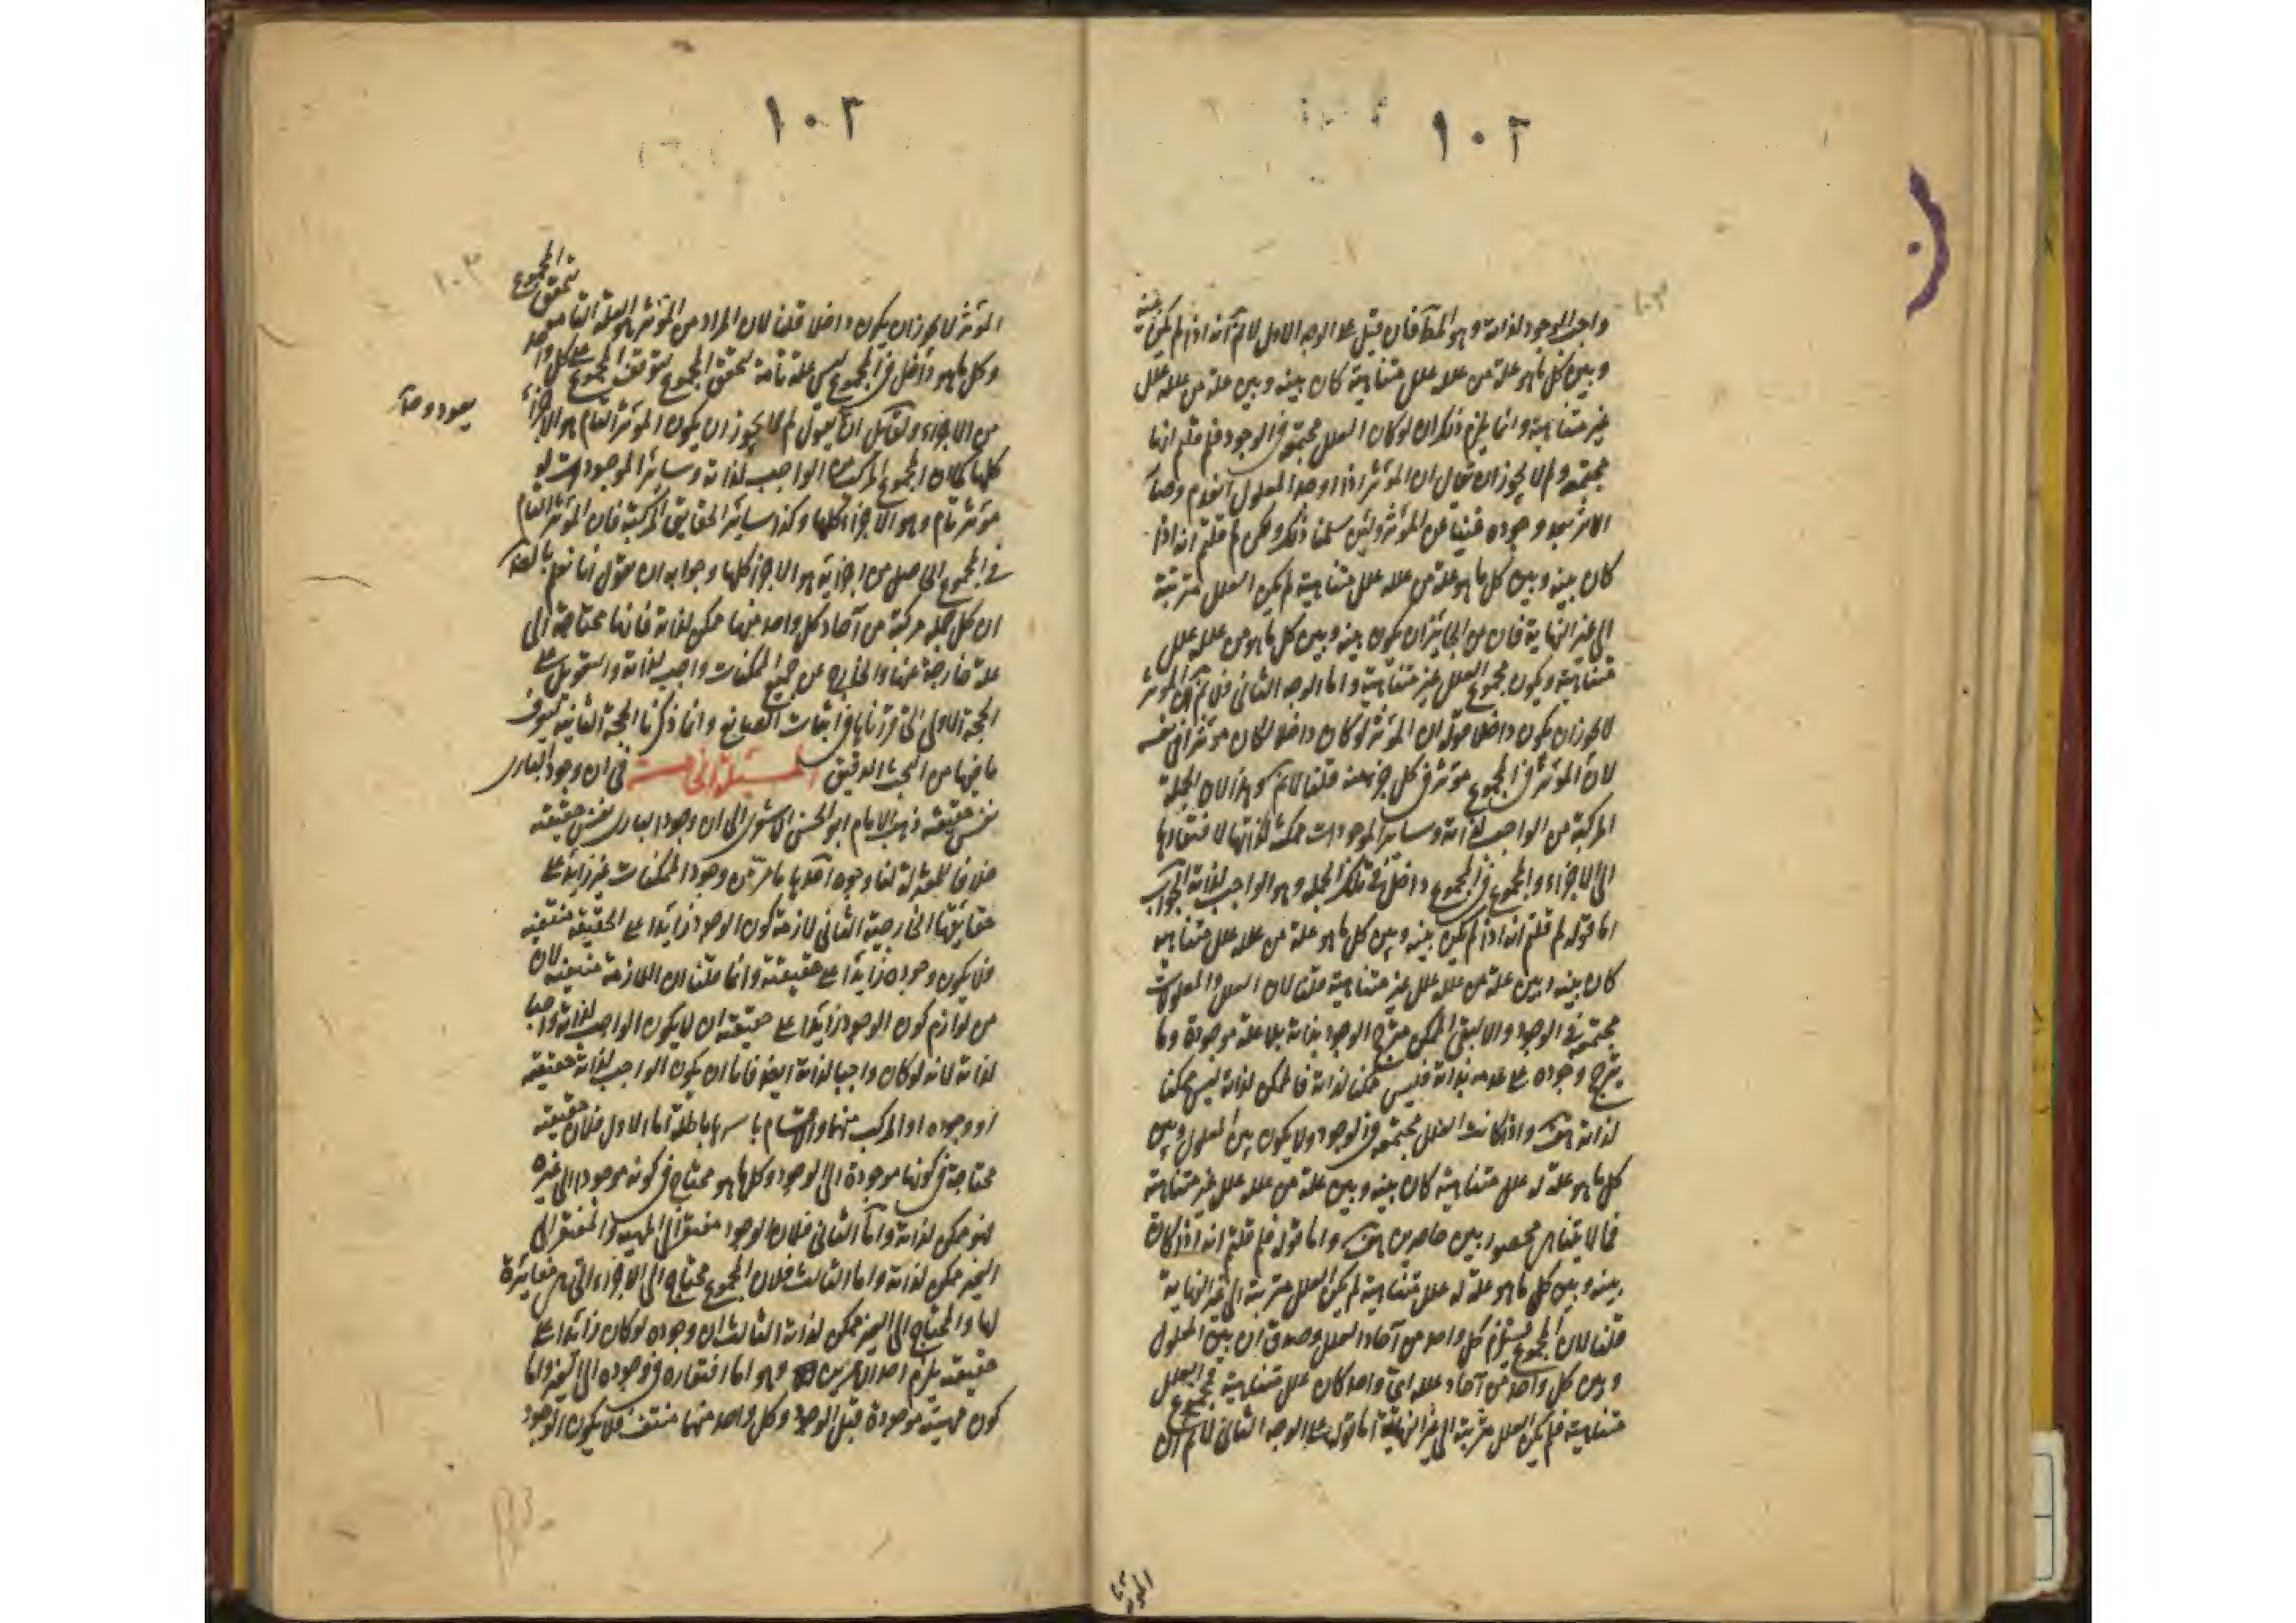 ١٠٢
واجب الوجود لذاته وهو المط فان قيل على الوجه الاول لانم انه اذا لم يكن بينه
وبين كل ما هو علة من علله علل متناهية كان بينه وبين علة من علله علل
غير متناهية وانما يلزم ذلك ان لو كان العلل مجتمعة في الوجود فلم قلتم انها
مجتمعة ولم لا يجوز ان يقال ان المؤثر اذا اوجد المعلول انعدم وصار
الاثر بعد وجوده غنيا عن المؤثر ولئن سلمنا ذلك ولكن لم قلتم انه اذا
كان بينه وبين كل ما هو علة من علله علل متناهية لم يكن العلل مترتبة
الى غير النهاية فان من الجائز ان يكون بينه وبين كل ما هو من علله علل
متناهية ويكون مجموع العلل غير متناهية واما الوجه الثاني فلانم ان المؤثر
لا يجوز ان يكون داخلا قوله ان المؤثر لو كان داخلا لكان مؤثرا في نفسه
لان المؤثر في المجموع مؤثر في كل جزء منه قلنا لانم وهذا لان الجملة
المركبة من الواجب لذاته وسائر الموجودات ممكنة لذاتها لافتقارها
الى الاجزاء والمجموع في المجموع داخل في تلك الجملة وهو الواجب لذاته الجواب
اما قوله لم قلتم انه اذا لم يكن بينه وبين كل ما هو علة من علله علل متناهية
كان بينه وبين علة من علله علل غير متناهية قلنا لان العلل والمعلولات
مجتمعة في الوجود والا لبقى الممكن مترجح الوجود بذاته بلا علة موجودة وما
يترجح وجوده على عدمه بذاته فليس ممكنا لذاته فالممكن لذاته ليس ممكنا
لذاته هف واذا كانت العلل مجتمعة في الوجود ولا يكون بين المعلول وبين
كل ما هو علة له علل متناهية كان بينه وبين علة من علله علل غير متناهية
فما لا يتناهى محصور بين حاصرين هف واما قوله فلم قلتم انه اذا كان
بينه وبين كل ما هو علة له علل متناهية لم يكن العلل مترتبة الى غير النهاية
قلنا لان المجموع يستلزم كل واحد من آحاد العلل وصدق ان بين المعلول
وبين كل واحد من آحاد علله اى واحد كان علل متناهية فمجموع العلل
متناهية فلم يكن العلل مترتبة الى غير النهاية اما قوله على الوجه الثاني لانم ان
١٠٢
١٠٣
المؤثر لا يجوز ان يكون داخلا قلنا لان المراد من المؤثر هو العلة التامة تحقق المجموع
وكل ما هو داخل في المجموع ليس علة تامة لتحقق المجموع لتوقف المجموع على كل واحد
من الاجزاء ولقائل ان يقول لم لا يجوز ان يكون المؤثر التام هو الاجزاء
كلها كما ان المجموع المركب من الواجب لذاته وسائر الموجودات له
مؤثر تام وهو الاجزاء كلها وكذا سائر الحقايق المركبة فان المؤثر التام
في المجموع الحاصل من اجزائه هو الاجزاء كلها وجوابه ان نقول انا نعلم بالضرورة
ان كل جملة مركبة من آحاد كل واحد منها ممكن لذاته فانها محتاجة الى
علة خارجة عنها والخارج عن جميع الممكنات واجب لذاته والتعويل على
الحجة الاولى التى قررناها في اثبات الصانع وانما ذكرنا الحجة الثانية ليعرف
ما فيها من البحث الدقيق المسئلة الخامسة في ان وجود البارى
نفس حقيقته ذهب الامام ابو الحسن الاشعرى الى ان وجود البارى نفس حقيقته
خلافا للمعتزلة لنا وجوه احدها ما مر من ان وجود الممكنات غير زايد على
حقايقها الخارجية الثانى لازمة كون الوجود زايدا على الحقيقة منتفية
فلا يكون وجوده زايدا على حقيقته وانما قلنا ان اللازمة منتفية لان
من لوازم كون الوجود زايدا على حقيقته ان لا يكون الواجب لذاته واجبا
لذاته لانه لو كان واجبا لذاته فاما ان يكون الواجب لذاته حقيقته
او وجوده او المركب منهما والاقسام باسرها باطلة اما الاول فلان حقيقته
محتاجة في كونها موجودة الى الوجود وكل ما هو محتاج في كونه موجودا الى غيره
فهو ممكن لذاته واما الثانى فلان الوجود مفتقر الى المهية والمفتقر الى
الغير ممكن لذاته واما الثالث فلان المجموع محتاج الى الاجزاء التى هى مغايرة
لها والمحتاج الى الغير ممكن لذاته الثالث ان وجوده لو كان زايدا على
حقيقته يلزم احد الامرين وهو اما افتقاره في وجوده الى الغير واما
كون مهيته موجودة قبل الوجود وكل واحد منهما منتف فلا يكون الوجود